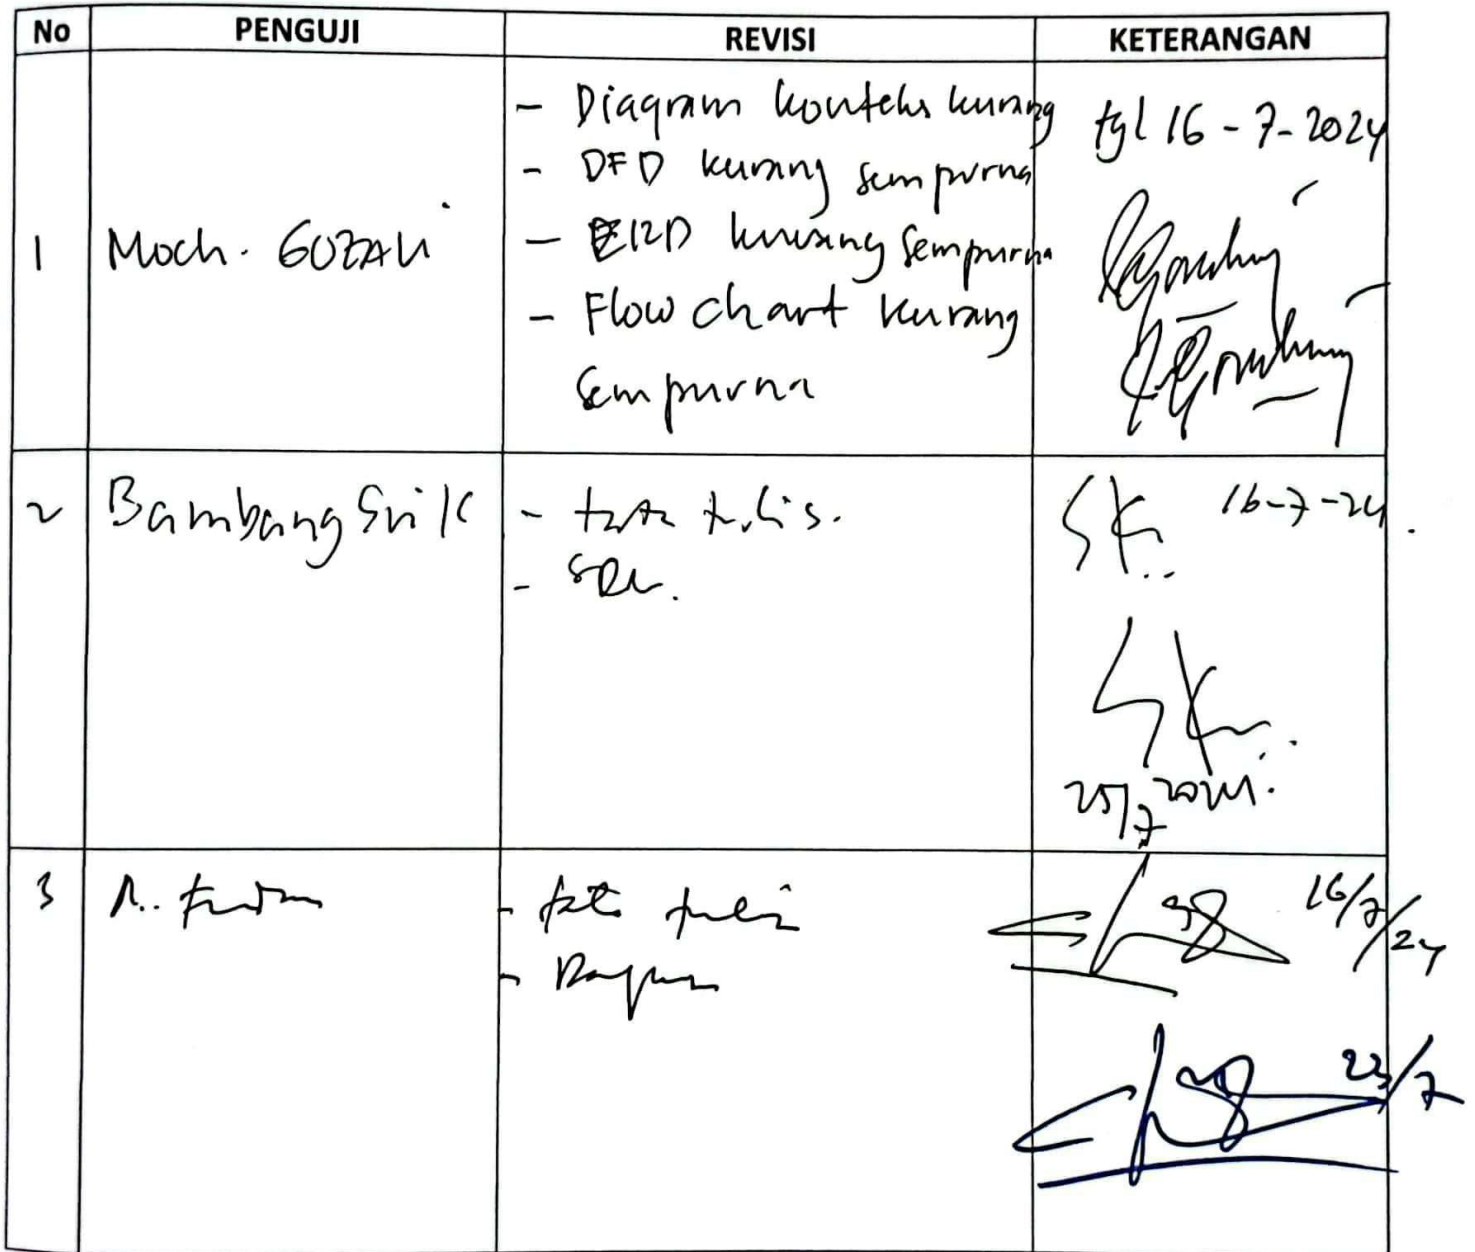 No PENGUJI REVISI KETERANGAN
1 Moch. GOZALI
- Diagram konteks kurang
- DFD kurang sempurna
- ERD kurang sempurna
- Flow chart kurang
sempurna
tgl 16-7-2024
2 Bambang Sri K
- tata tulis.
SK 16-7-24
SK
25/7 2024.
3
- tata tulis
16/7/24
23/7